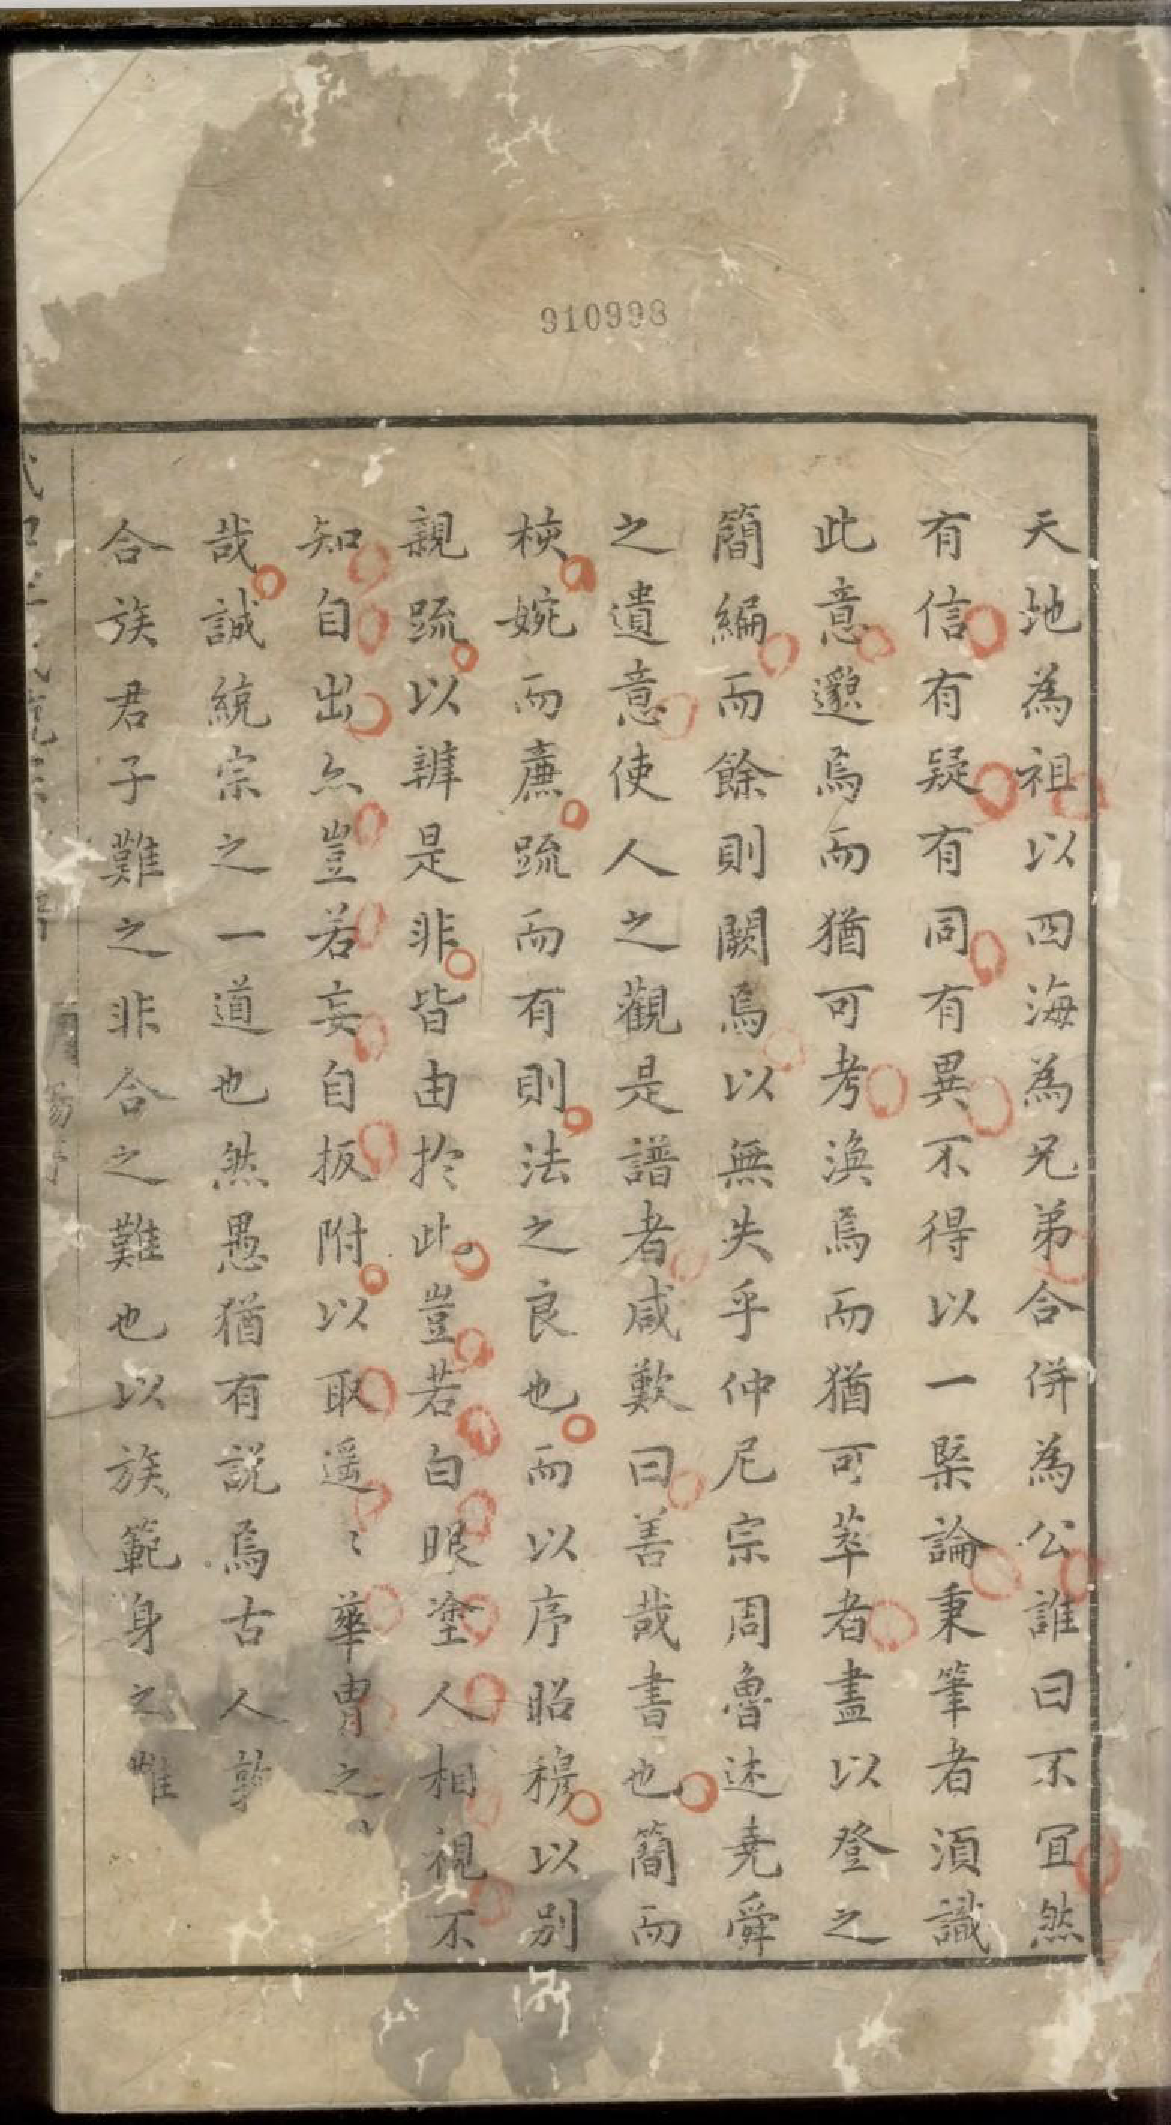 910998
天地為祖以四海為兄弟合併為公誰曰不宜然
有信有疑有同有異不得以一槩論秉筆者須識
此意邈焉而猶可考渙焉而猶可萃者盡以登之
簡編而餘則闕焉以無失乎仲尼宗周魯述堯舜
之遺意使人之觀是譜者咸歎曰善哉書也簡而
核婉而廉疏而有則法之良也而以序昭穆以別
親疏以辨是非皆由於此豈若白眼塗人相視不
知自出亦豈若妄自扳附以取遥〻華胄之
哉誠統宗之一道也然愚猶有説焉古人敦
合族君子難之非合之難也以族範身之